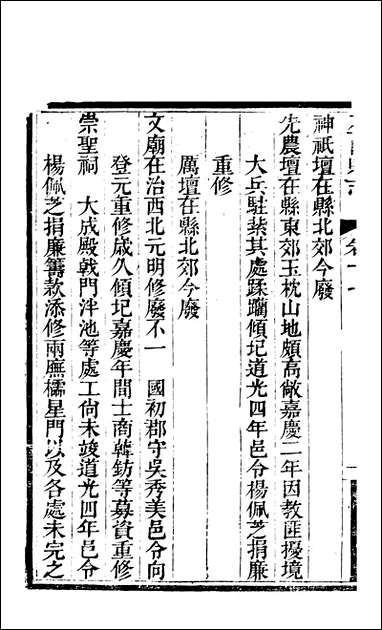 神祇壇在縣北郊今廢
先農壇在縣東郊玉枕山地頗高敞嘉慶二年因教匪擾境
大兵駐紮其處蹂躪傾圮道光四年邑令楊佩芝捐廉
重修
厲壇在縣北郊今廢
文廟在治西北元明修廢不一　國初郡守吳秀美邑令向
登元重修歲久傾圮嘉慶年間士商韓鈁等募資重修
崇聖祠　大成殿戟門泮池等處工尙未竣道光四年邑令
楊佩芝捐廉籌款添修兩廡櫺星門以及各處未完之